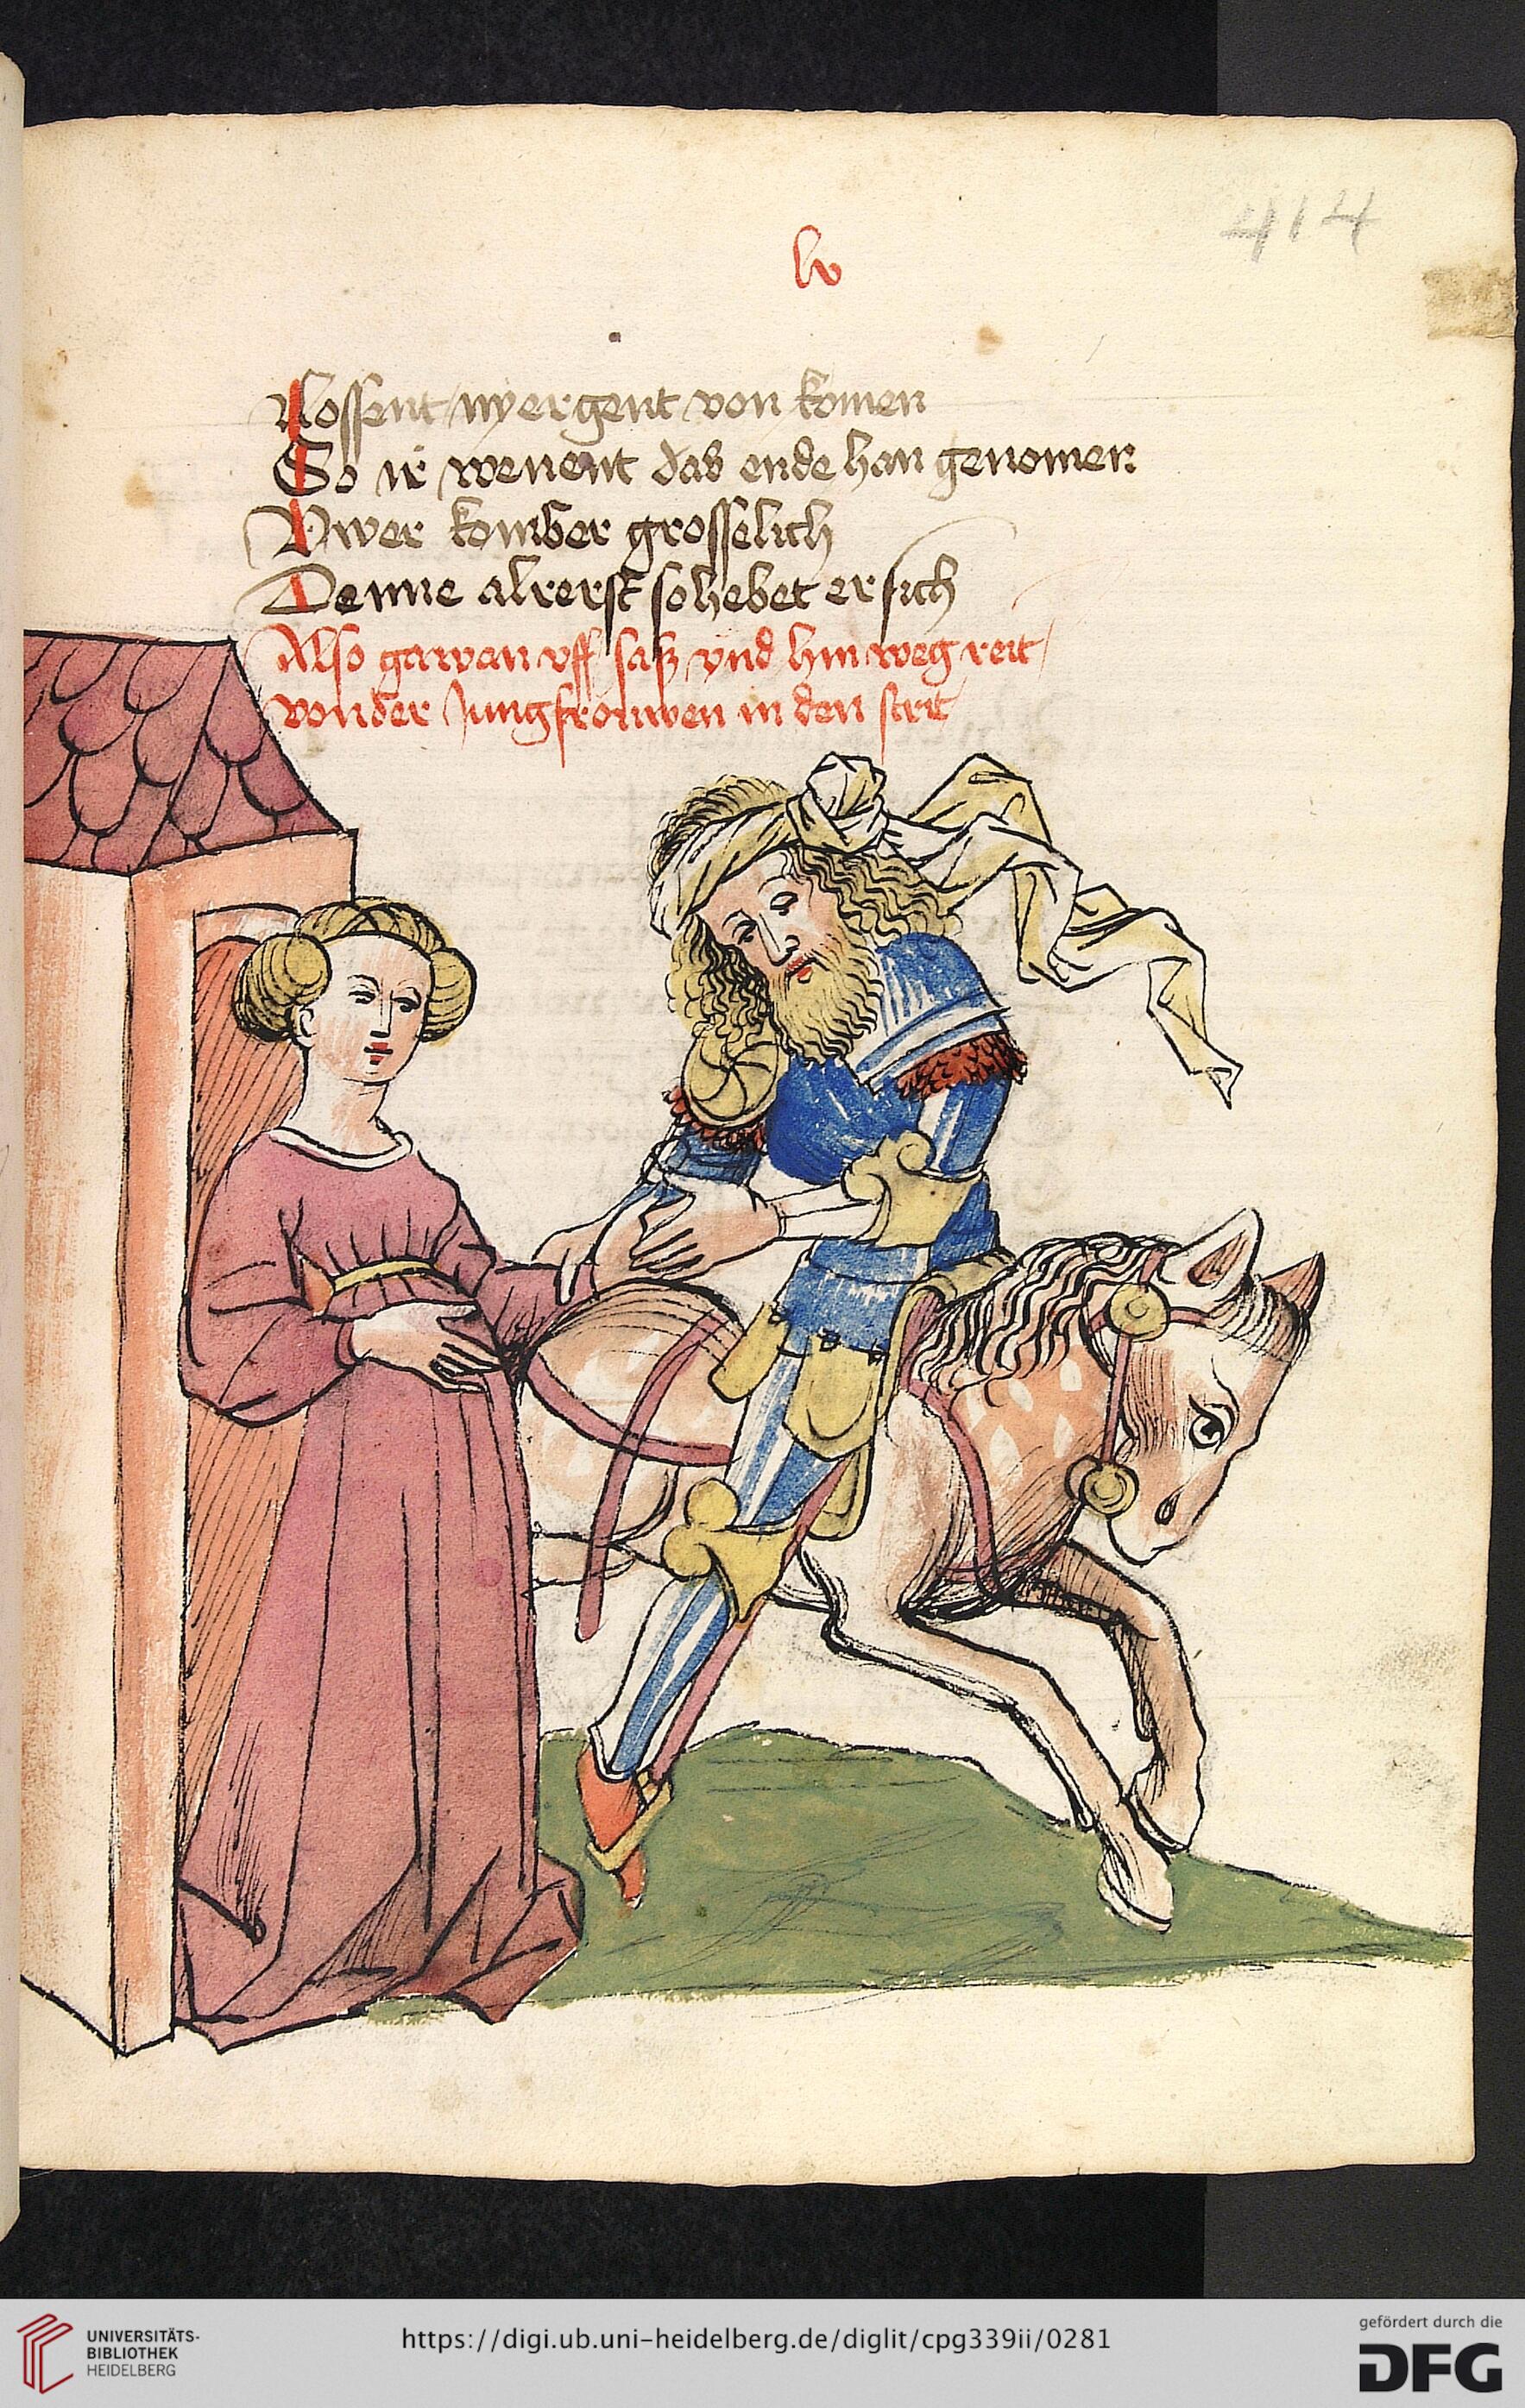 414
lv
Lossent nyergent von komen
So ir wenent das ende han genomen
Vwer komber grosselich
Denne alrerst so hebet er sich
Also gawan vff sasz vnd hin weg reit
von der Jungfrouwen in den strit
UNIVERSITÄTS-
BIBLIOTHEK
HEIDELBERG
https://digi.ub.uni-heidelberg.de/diglit/cpg339ii/0281
gefördert durch die
DFG